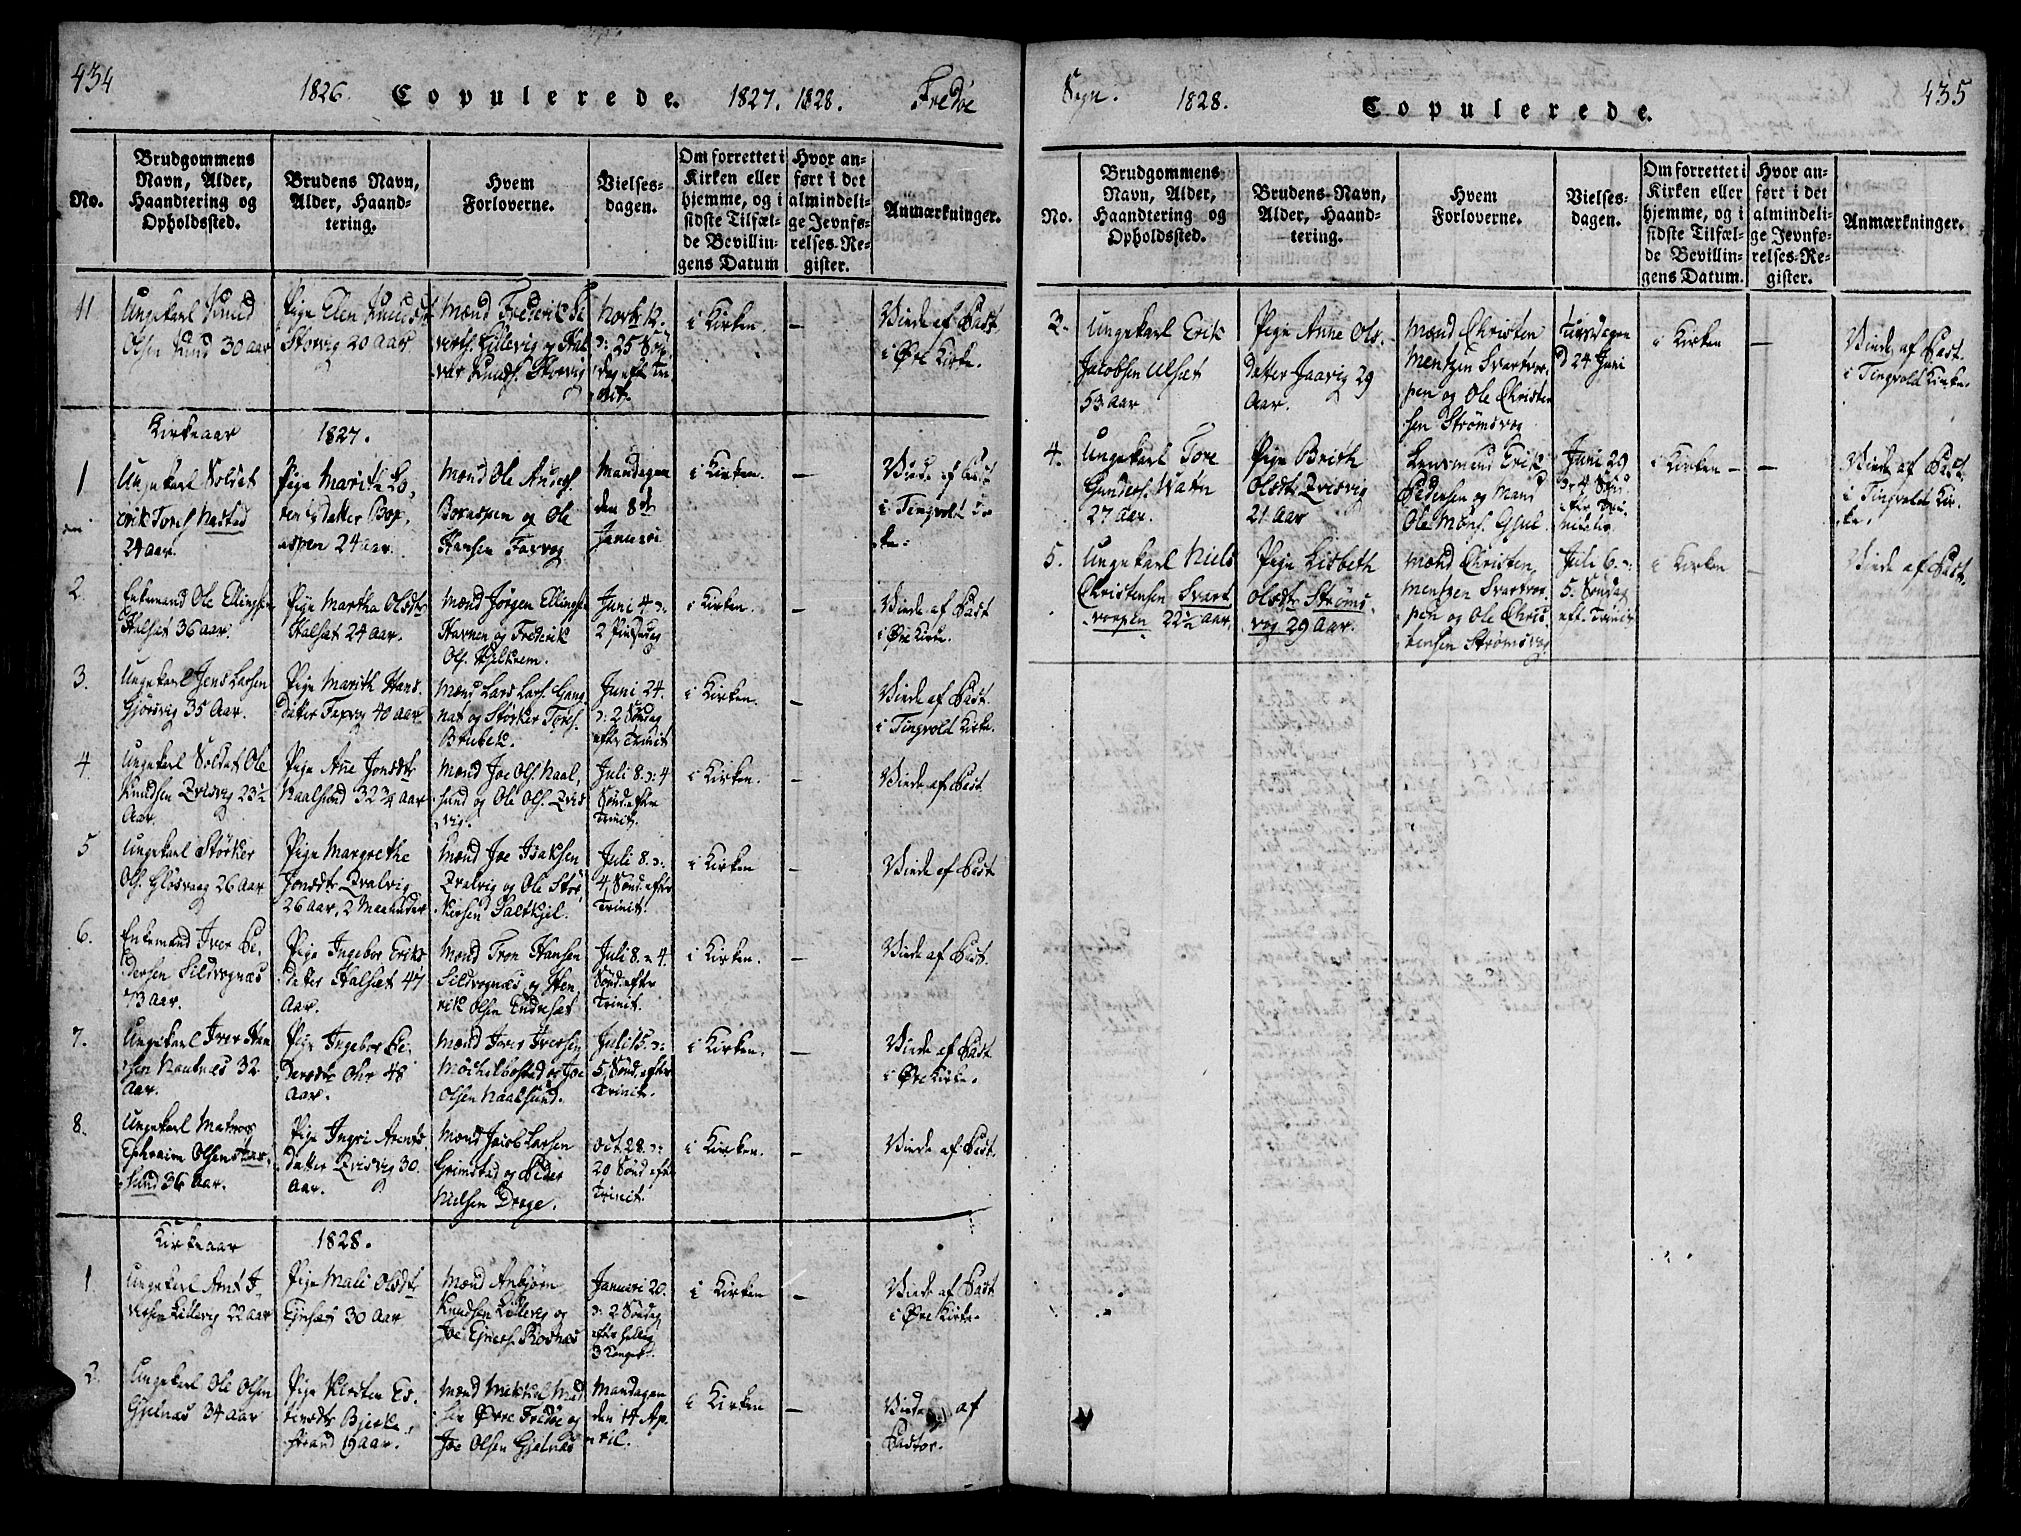 434
1826. Copulerede. 1827. 1828. Fredøe
No.
Brudgommens
Navn, Alder,
Haandtering og
Opholdssted.
Brudens Navn,
Alder, Haand-
tering.
Hvem
Forloverne.
Vielses-
dagen.
Om forrettet i
Kirken eller
hjemme, og i
sidste Tilfæl-
de Bevillin-
gens Datum
Hvor an-
ført i det
almindeli-
ge Jevnfø-
relses-Re-
gister.
Anmærkninger.
11
Ungekarl Knud
Olsen Sund 30 aar
Pige Elen Knudsdt
Storvig 20 Aar
Mænd Frederik
Lillevig og Hal
var Knuds. Storvig
25 Søn
dag efter Tri
nit.
i Kirken.
—
Viede af Past.
i Øre Kirke.
Kirkeaar 1827.
1
Ungekarl Soldat
Erik Tores. Nastad
24 aar.
Pige Marith
datter
24 aar.
Mænd Ole Anders.
og Ole
Hansen Farvog
Mandagen
den 8de
Januari
i Kirken.
—
Viede af Past
i Tingvold Kir
ke.
2.
Enkemand Ole Ellingsen
Halsæt 36 aar.
Pige Martha Olsdtr
Halsæt 24 aar.
Mænd Jørgen Ellings.
Havnen og Frederik
Ols. Hjelkrem.
Juni 4 ɔ:
2 Pintsedag
i Kirken.
—
Viede af Past
i Øre Kirke.
3.
Ungekarl Jens Larsen
Gjørsvig 35 Aar.
Pige Marith Hans
datter Farvog 40 aar
Mænd Lars Lars.
og Størker Tores.
Brubek.
Juni 24.
ɔ: 2 Søndag
efter Trinit
i Kirken.
—
Viede af Past.
i Tingvold Kirke.
4
Ungekarl Soldat Ole
Knudsen Qvisvig 23½
Aar.
Pige Ane Jonsdtr
Naalsund 32¾ aar
Mænd Joe Ols. Naal
sund og Ole Ols. Qvis
vig.
Juli 8. ɔ: 4
Sønd. efter
Trinit.
i Kirken.
—
Viede af Past
5
Ungekarl Størker
Ols. Gløsvaag 26 Aar
Pige Margrethe
Jonsdtr Qvalvig
26 aar, 2 Maaneder
Mænd Joe Isaksen
Qvalvig og Ole Stør
kersen Saltkjel.
Juli 8. ɔ:
4 Sønd. efter
Trinit.
i Kirken
—
Viede af Past
6.
Enkemand Iver Pe
dersen Sildvognæs
73 aar.
Pige Ingebor Eriks
datter Halsæt 47
Aar.
Mænd Tron Hansen
Sildvognæs og Hen
rik Olsen Endresæt
Juli 8. ɔ 4.
Sønd. efter
Trinit.
i Kirken.
—
Viede af Past.
7.
Ungekarl Iver Han
sen Nautnæs 32
Aar.
Pige Ingebor Pe
dersdtr Ohr 48
Aar.
Mænd Iver Iversen
Møchelbostad og Joe
Olsen Naalsund.
Juli 15. ɔ:
5 Sønd. efter
Trinit.
i Kirken.
—
Viede af Past
i Øre Kirke.
8.
Ungekarl Matros
Ephraim Olsen
sund 36 Aar.
Pige Ingri Arents
datter Qvisvig 30.
Aar.
Mænd Jacob Larsen
Grimstad og Peder
Nielsen Drage.
Oct. 28. ɔ:
20 Sønd. efter
Trinit.
i Kirken.
—
Viede af Past.
Kirkeaar 1828.
1
Ungekarl Arnt I
versen Lillevig 22 aar
Pige Mali Olsdtr
30 Aar
Mænd Anbjørn
Knudsen Lillevig og
Joe
Januari 20.
ɔ: 2 Søndag
efter Hellig
3 Konger
i Kirken
—
Viede af Past
i Øre Kirke.
2.
Ungekarl Ole Olsen
Gjelnæs 34 aar
Pige Kirsten
Bjerke
strand 19 aar.
Mænd Mikkel Mad
sen Øvre Fredøe og
Joe Olsen Gjelnæs
Mandagen
den 14 Ap
ril.
i Kirken
—
Viede af
Pastor.
Sogn. 1828. Copulerede. 435
No.
Brudgommens
Navn, Alder,
Haandtering og
Opholdssted.
Brudens Navn,
Alder, Haand-
tering.
Hvem
Forloverne.
Vielses-
dagen.
Om forrettet i
Kirken eller
hjemme, og i
sidste Tilfæl-
de Bevillin-
gens Datum.
Hvor an-
ført i det
almindeli-
ge Jevnfø-
relses-Re-
gister.
Anmærkninger.
3.
Ungekarl Erik
Jacobsen Ulsæt
53 aar
Pige Anne Ols
datter Jaavig 29
Aar.
Mænd Christen
Mentzen Svartvor
pen og Ole Christen
sen Strømsvog
Tirsdagen
d 24 Juni
i Kirken
—
Viede af Past.
i Tingvold Kirke.
4.
Ungekarl Tore
Gunders. Watn
27 aar.
Pige Brith
Olsdtr Qvisvig
21 Aar
Lensmand Erik
Pedersen og Mand
Ole Møns. Gjul
Juni 29
ɔ: 4 Sønd
efter Tri
nitatis
i Kirken
—
Viede af Past.
i Tingvold Kir
ke.
5.
Ungekarl Niels
Christensen Svart
vorpen 22½ Aar
Pige Lisbeth
Olsdtr Strøms
vog 29 Aar.
Mænd Christen
Mentzen Svartvor
pen og Ole Chris
tensen Strømsvog
Juli 6. ɔ:
5. Søndag
eft. Trinit
i Kirken
—
Viede af Past.